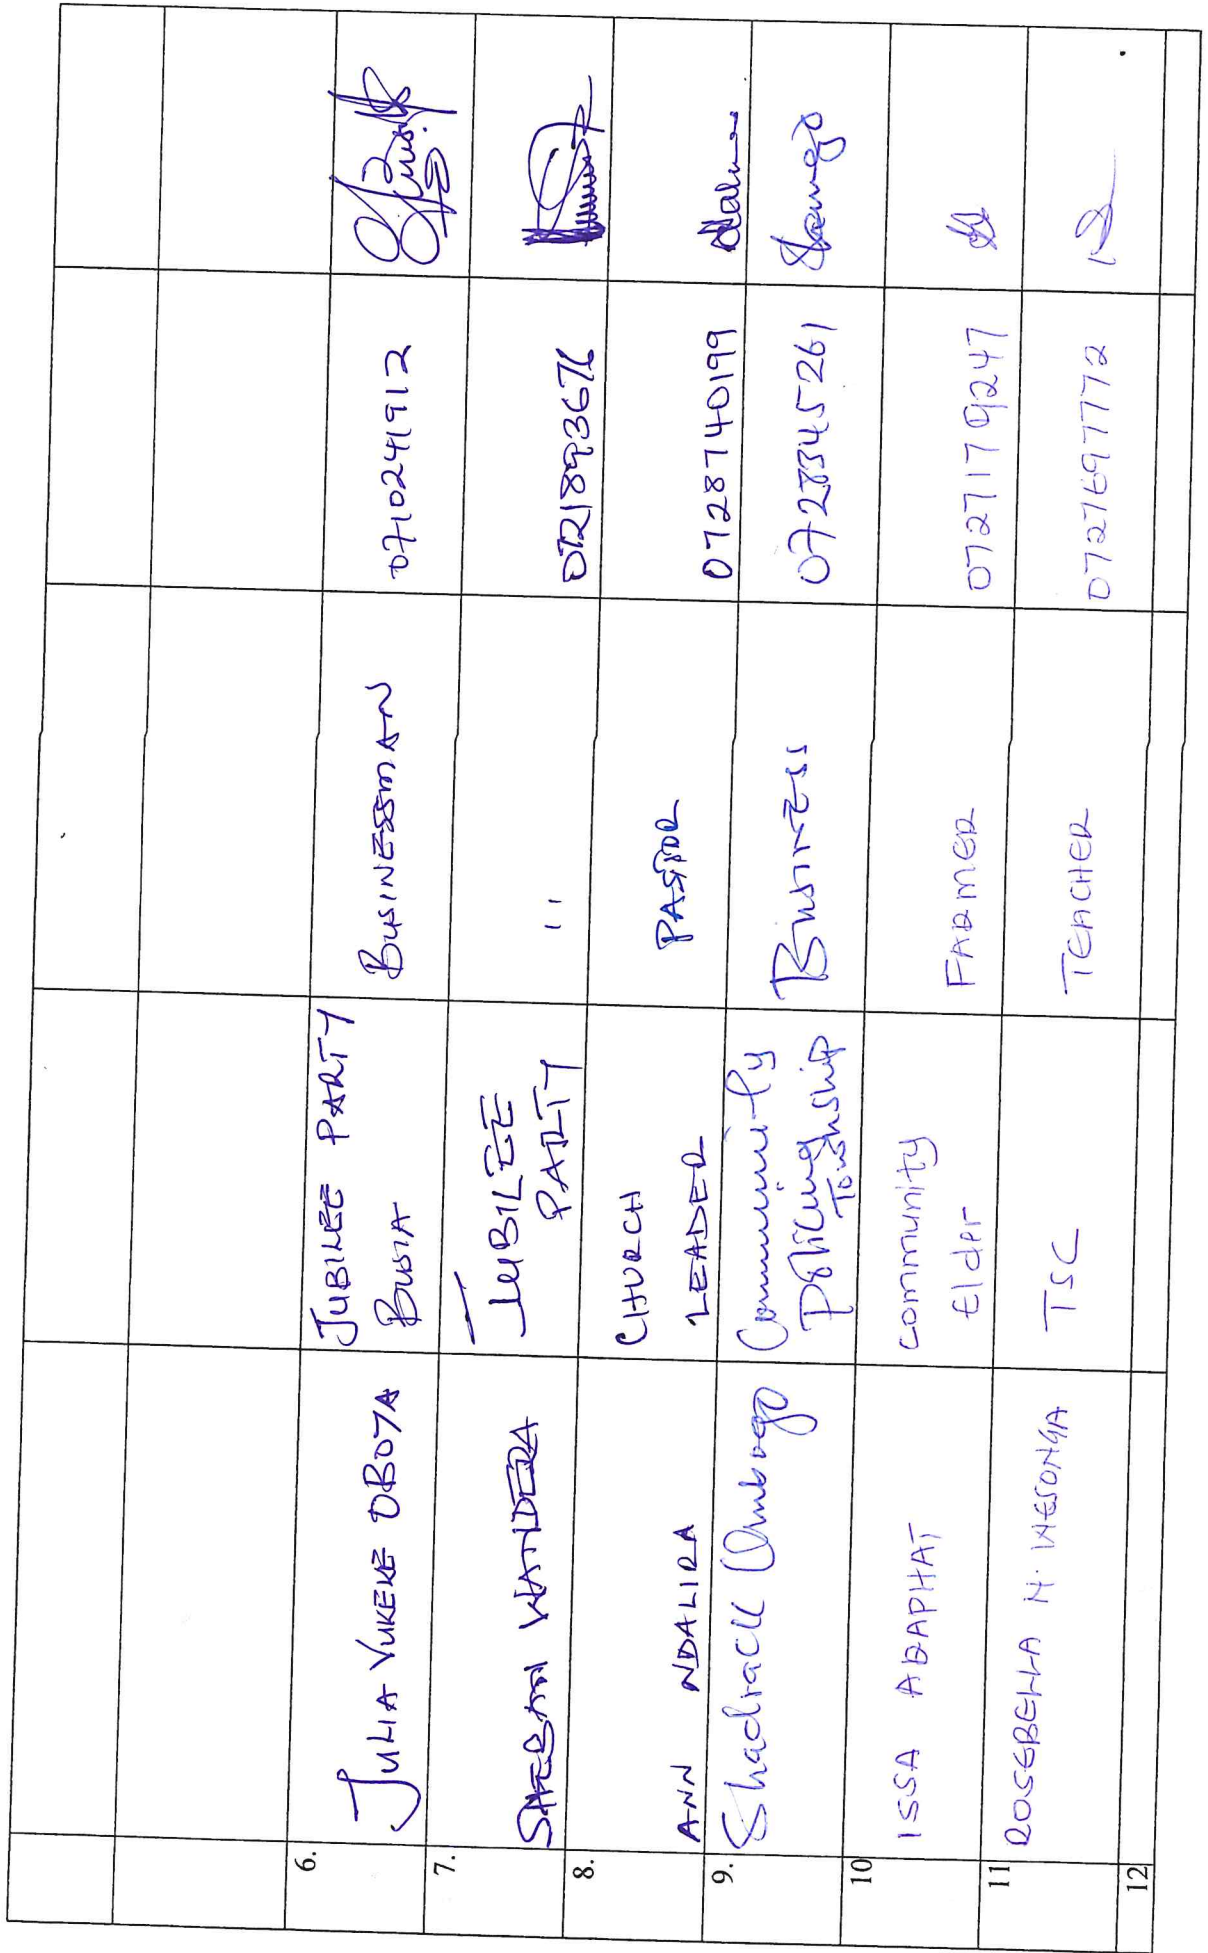 6. JULIA VUKEKE OBOYA JUBILEE PARTY BUSIA BUSINESSMAN 0710241912
7. WANDERA JUBILEE PARTY " 0721893676
8. ANN NDALIRA CHURCH LEADER PASTOR 0728740199
9. Shadrack Ombogo Community Policing Township Business 0728345261
10 ISSA ARAPHAT Community Elder FARMER 0727179247
11 ROSEBELLA N. WESONGA TSC TEACHER 0727697772
12